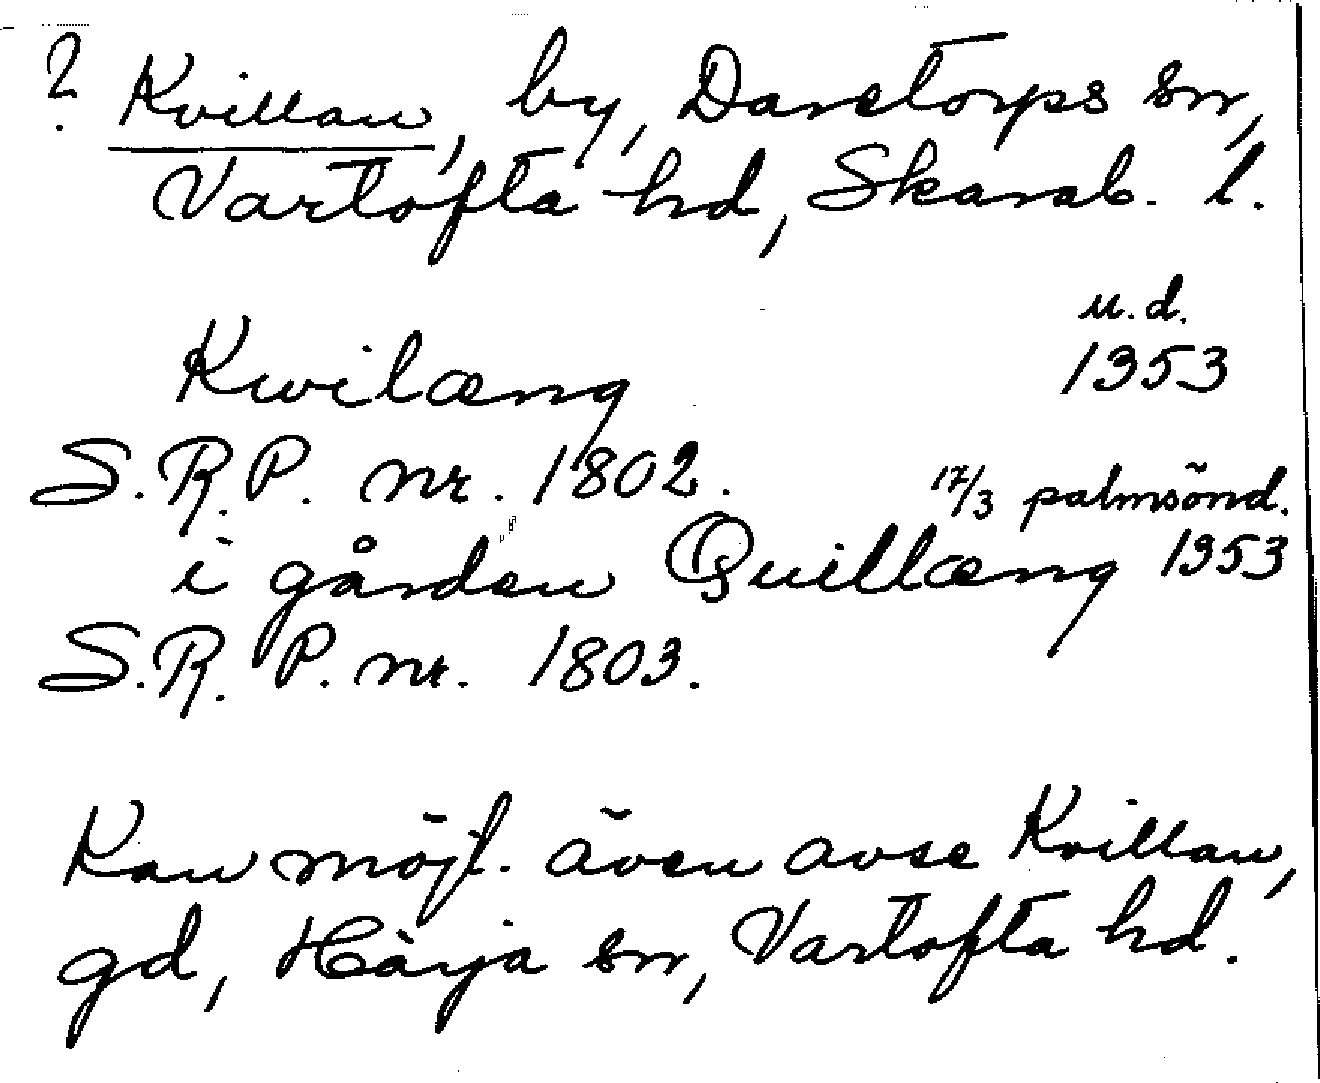 ? Kvillan, by, Daretorps sn,
Vartofta hd, Skarab. l.
u.d.
Kwilæng 1353
S.R.P. nr. 1802.
17/3 palmsönd.
i gården Quillæng 1353
S.R.P. nr. 1803.
Kan möjl. även avse Kvillan,
gd, Härja sn, Vartofta hd.